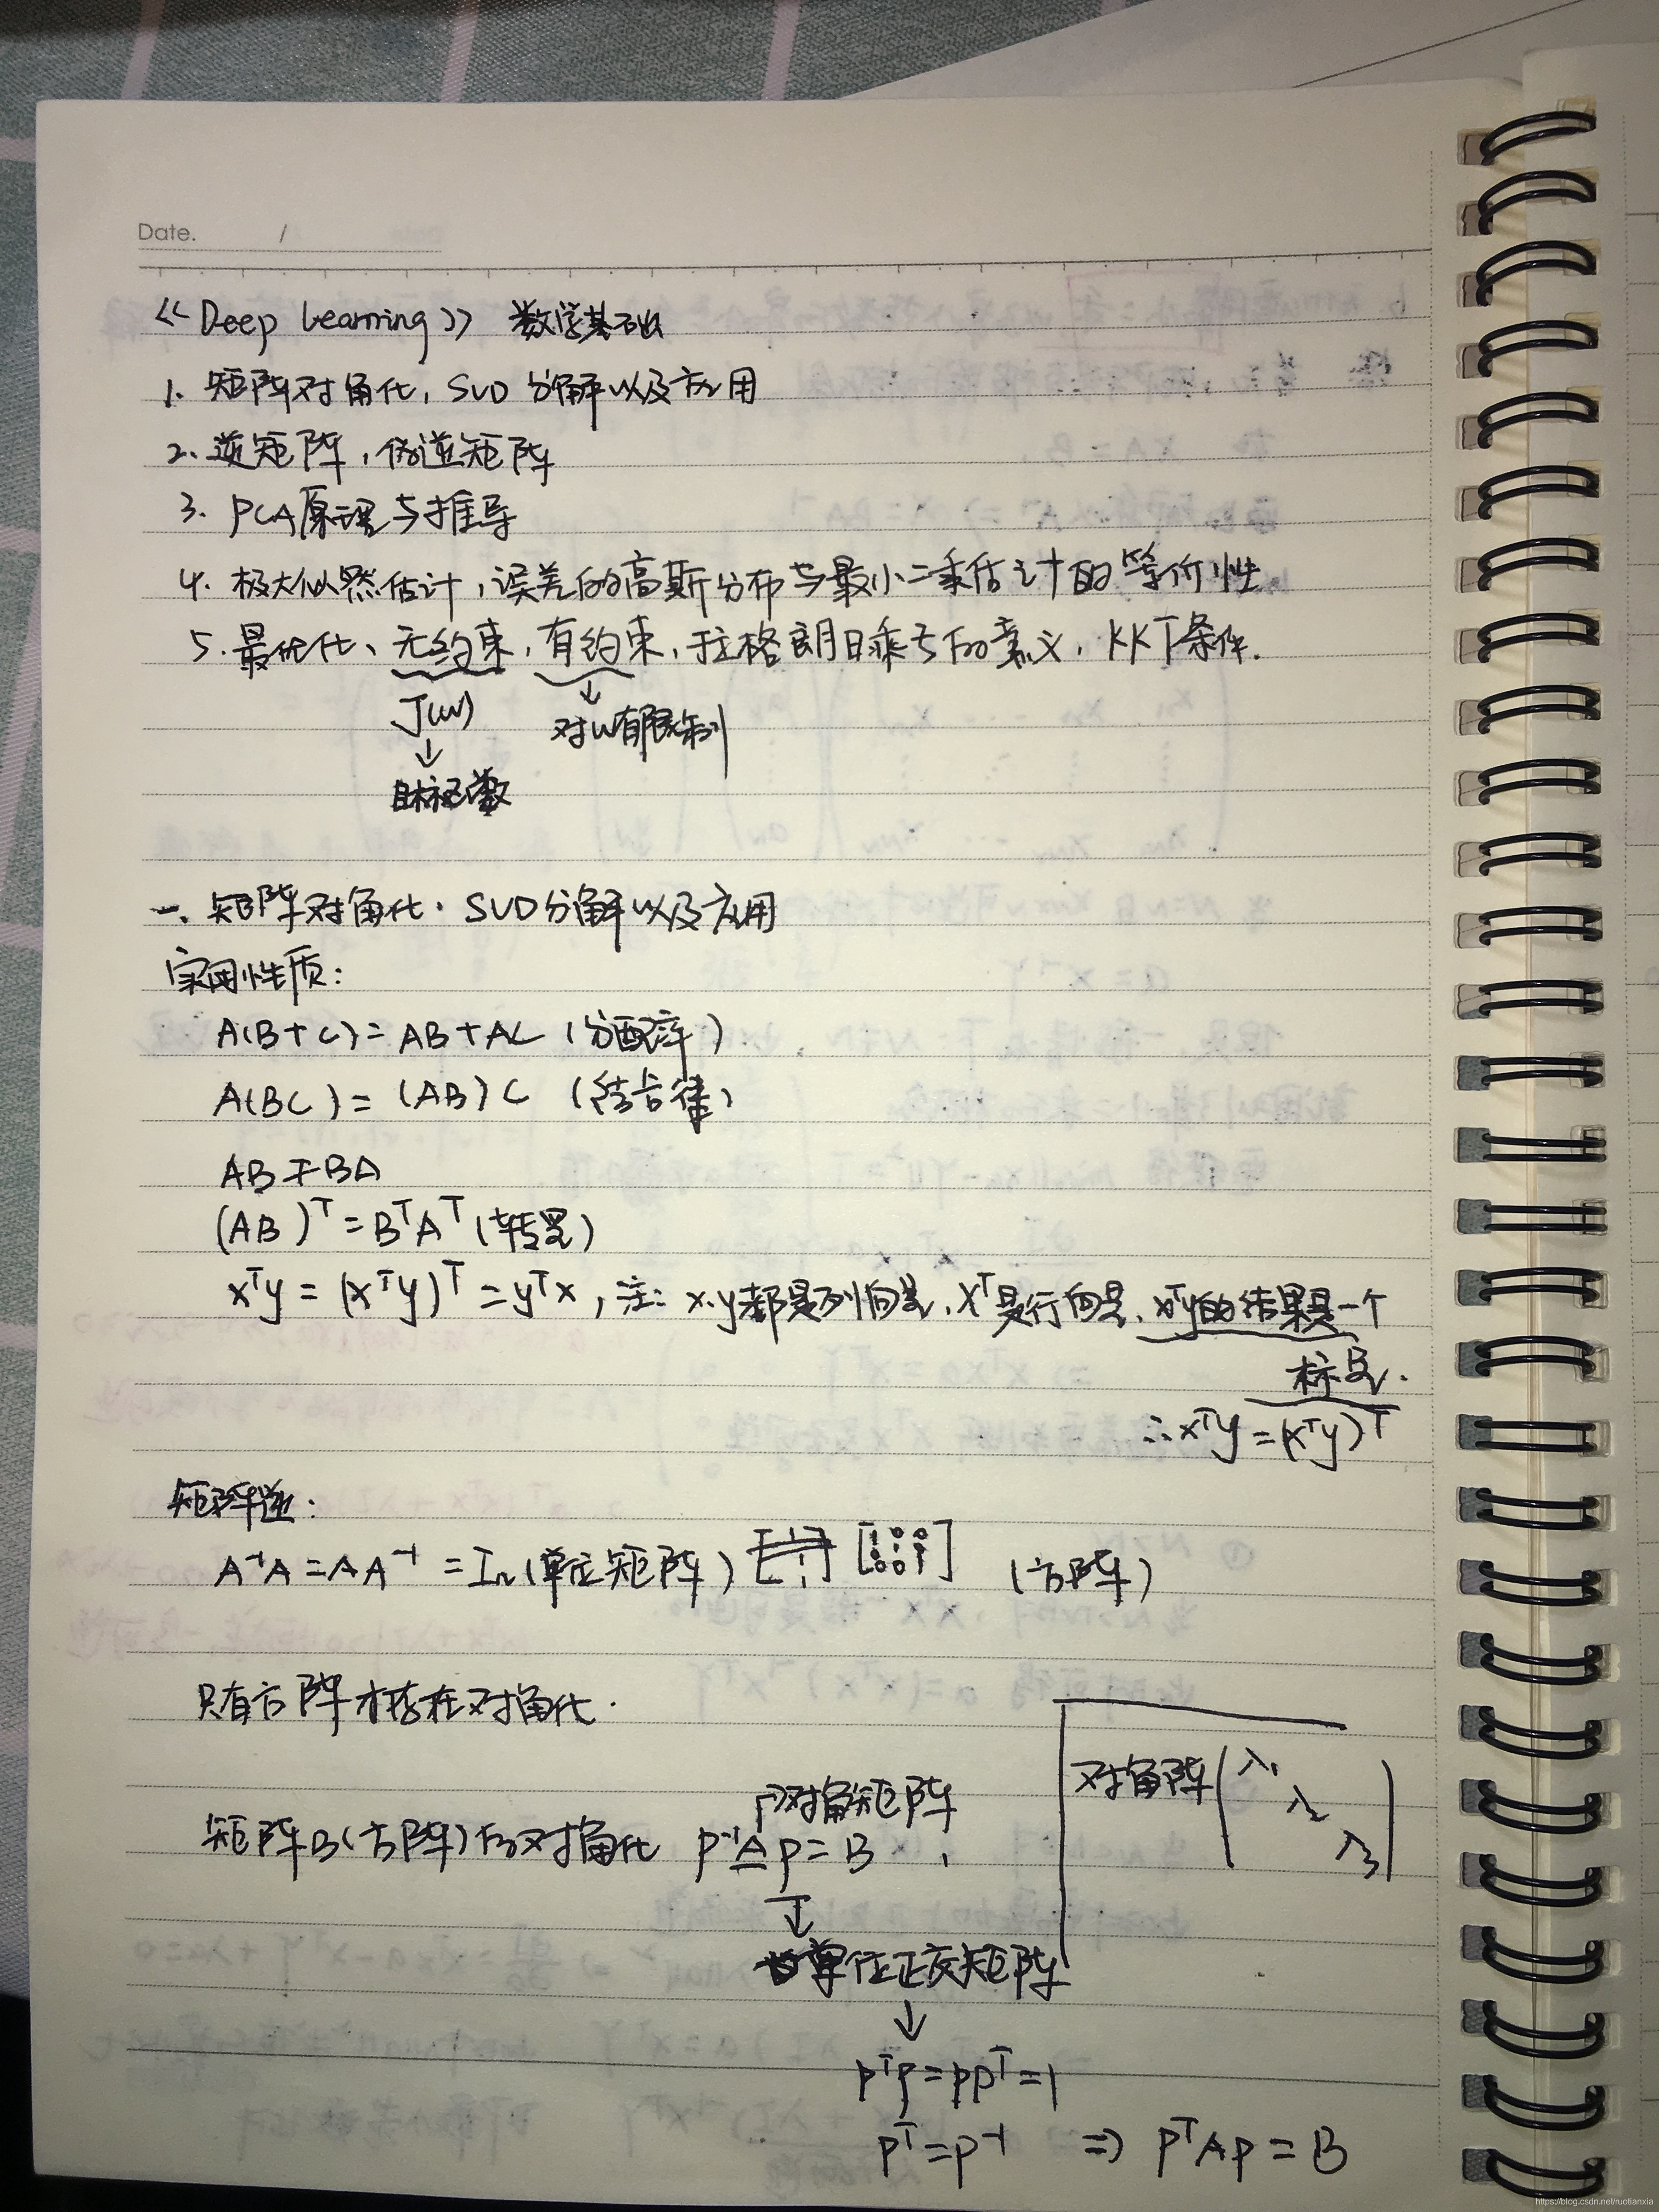 Date. /
《Deep Learning》 数学基础
1. 矩阵对角化, SVD 分解以及应用
2. 逆矩阵, 伪逆矩阵
3. PCA原理与推导
4. 极大似然估计, 误差的高斯分布与最小二乘估计的等价性
5. 最优化、无约束, 有约束, 拉格朗日乘子的意义, KKT条件.
J(w) 对w有限制
↓
目标函数
一. 矩阵对角化. SVD分解以及应用
实用性质:
A(B+C) = AB+AC (分配率)
A(BC) = (AB)C (结合律)
AB≠BA
(AB)ᵀ = BᵀAᵀ (转置)
xᵀy = (xᵀy)ᵀ = yᵀx, 注: x.y都是列向量, xᵀ是行向量, xᵀy的结果是一个
标量.
∴ xᵀy = (xᵀy)ᵀ
矩阵逆:
A⁻¹A = AA⁻¹ = Iₙ (单位矩阵) (方阵)
只有方阵才存在对角化.
对角阵 (λ₁ λ₂ λ₃)
→对角矩阵
矩阵B(方阵)的对角化 P⁻¹AP = B ,
↓
单位正交矩阵
↓
PᵀP = PPᵀ = 1
Pᵀ = P⁻¹ ⇒ PᵀAP = B
https://blog.csdn.net/ruotianxia